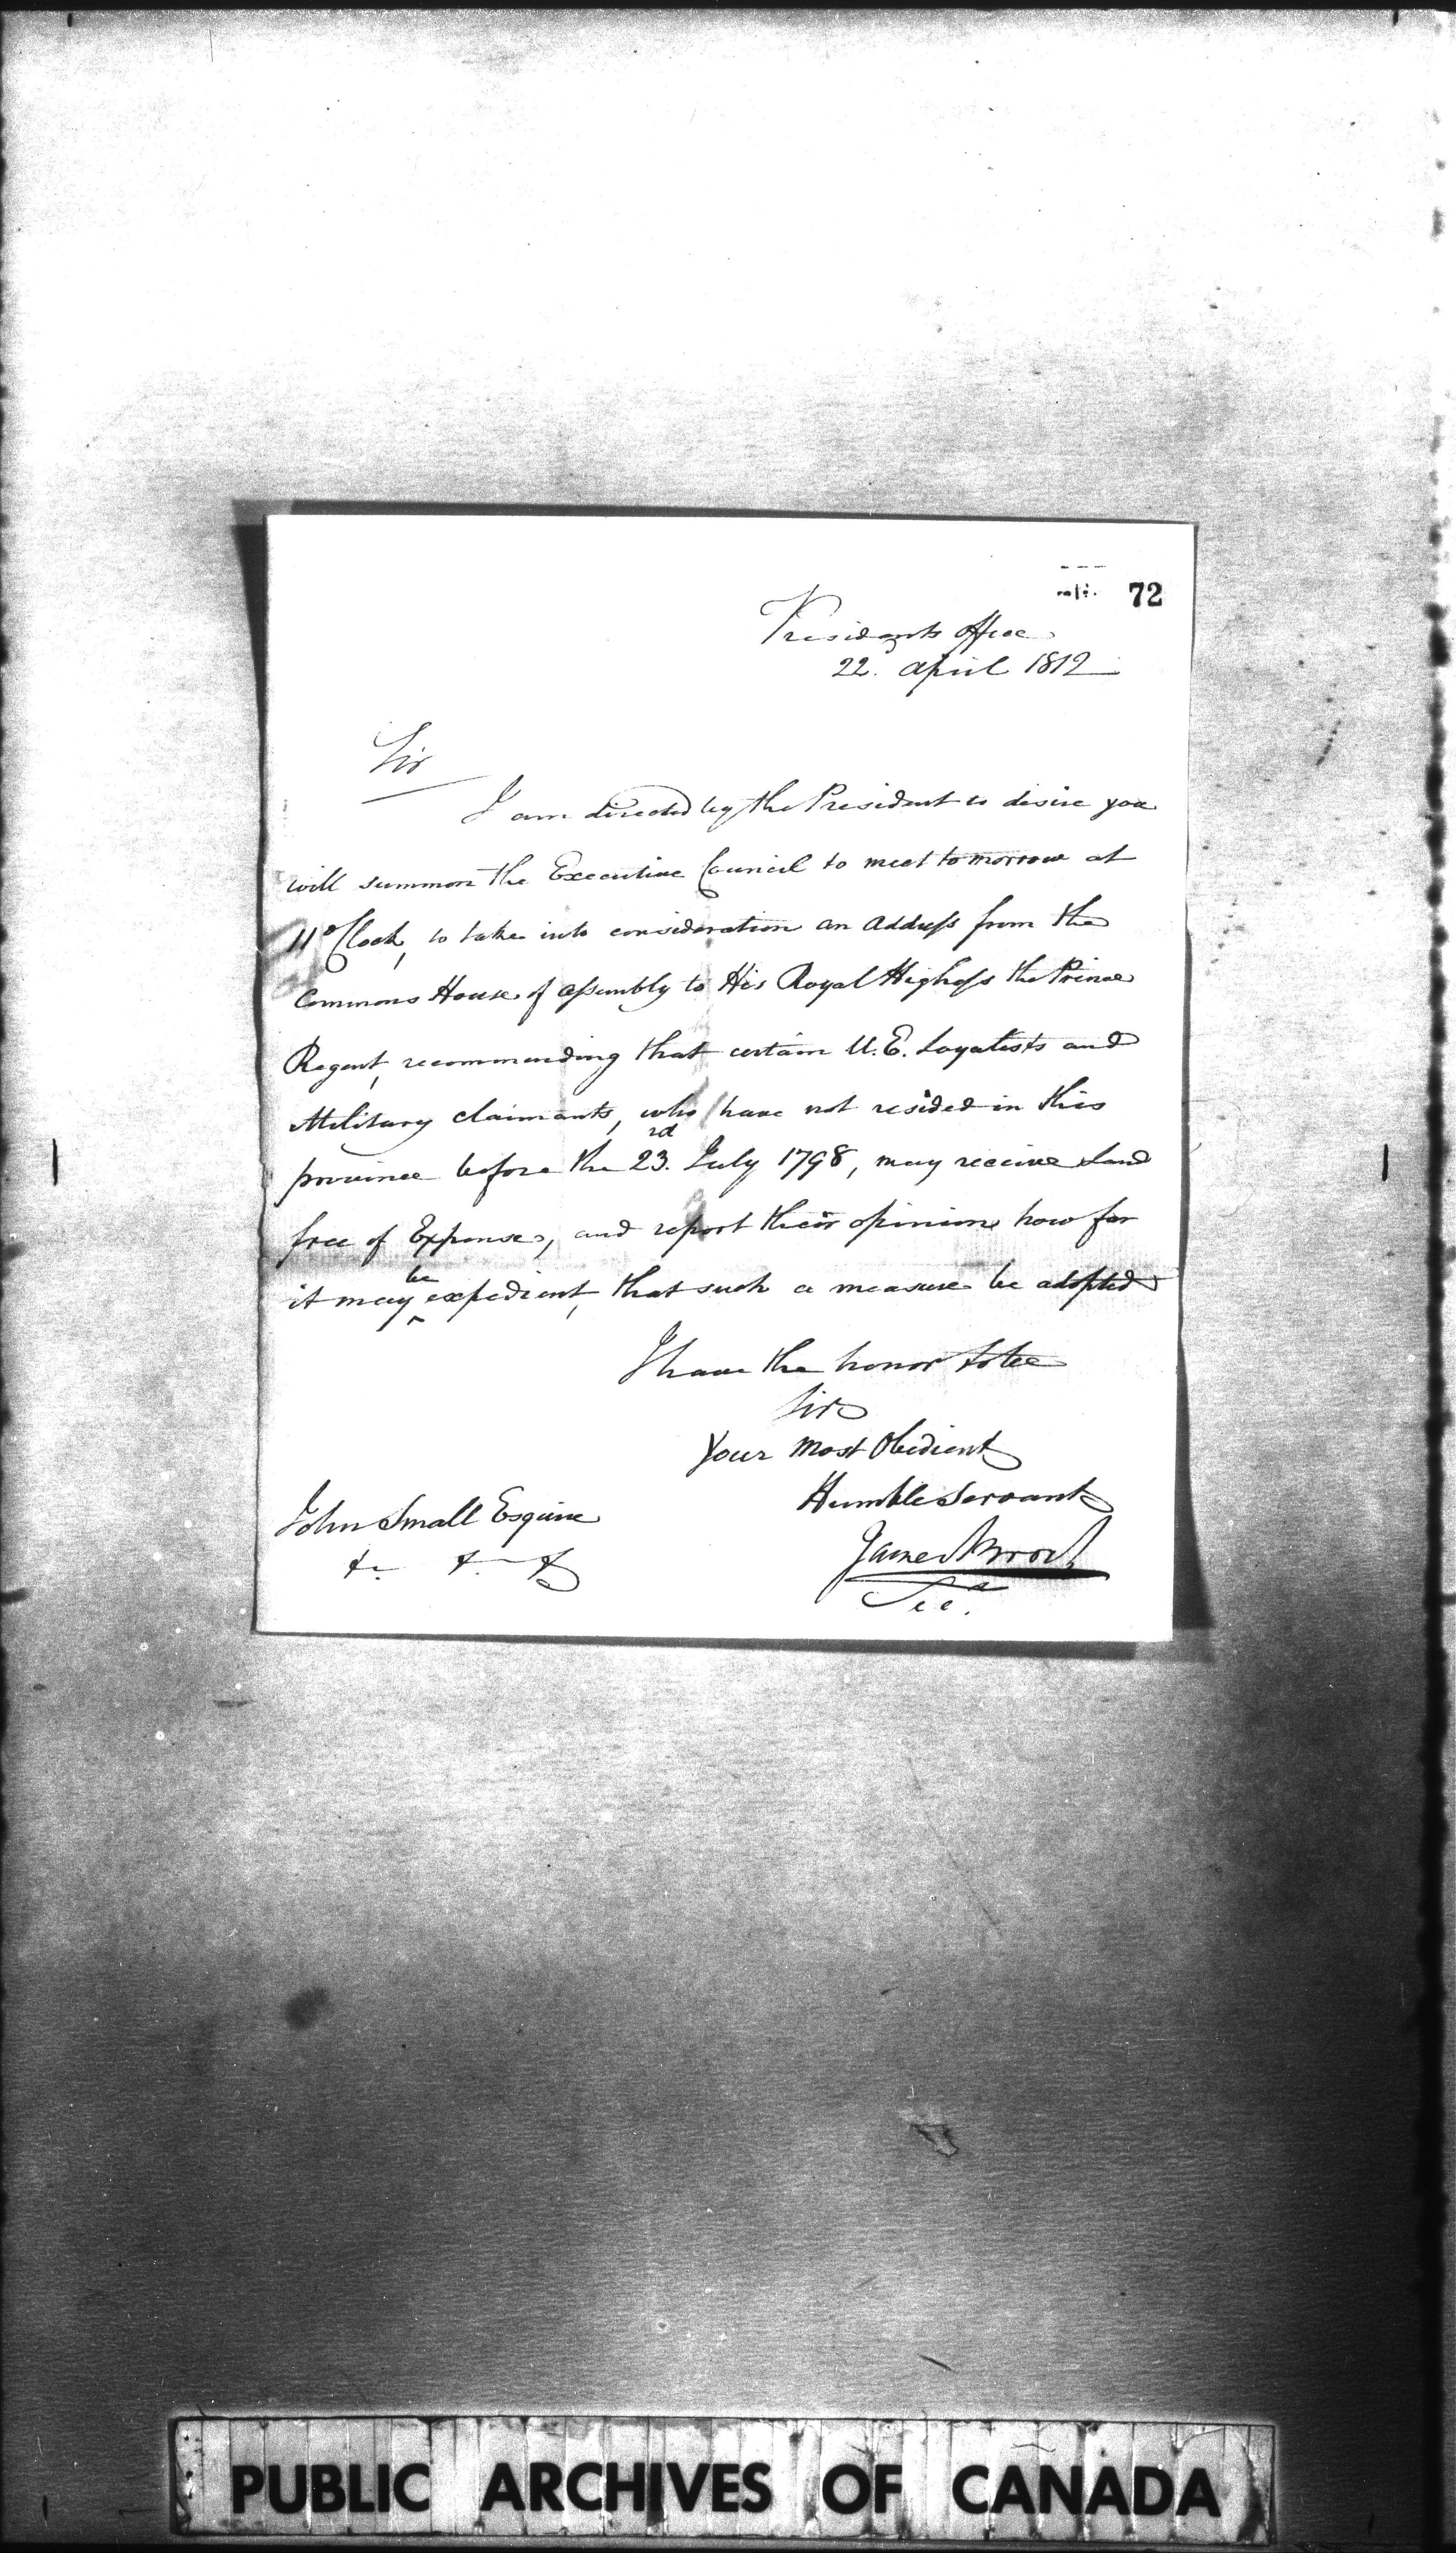 72
Presidents Office
22. April 1812
Sir
I am directed by the President to desire you
will summon the Executive Council to meet tomorrow at
11 oClock, to take into consideration an Address from the
Commons House of Assembly to His Royal Highess the Prince
Regent, recommending that certain U.E. Loyalists and
Military claimants, who have not resided in this
province before the 23rd. July 1798, may receive Land
free of Expense, and report their opinion, how far
it may be expedient, that such a measure be adopted
I have the honor to be
Sir
Your most Obedient
Humble Servant
John Small Esquire
&c. &c. &c
James Brock
Sec.
PUBLIC ARCHIVES OF CANADA